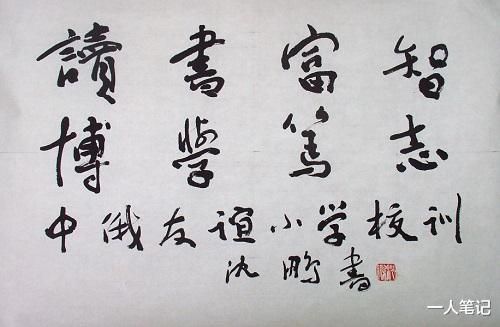 讀書富智
博學篤志
中俄友谊小学校训
沈鹏書
一人笔记